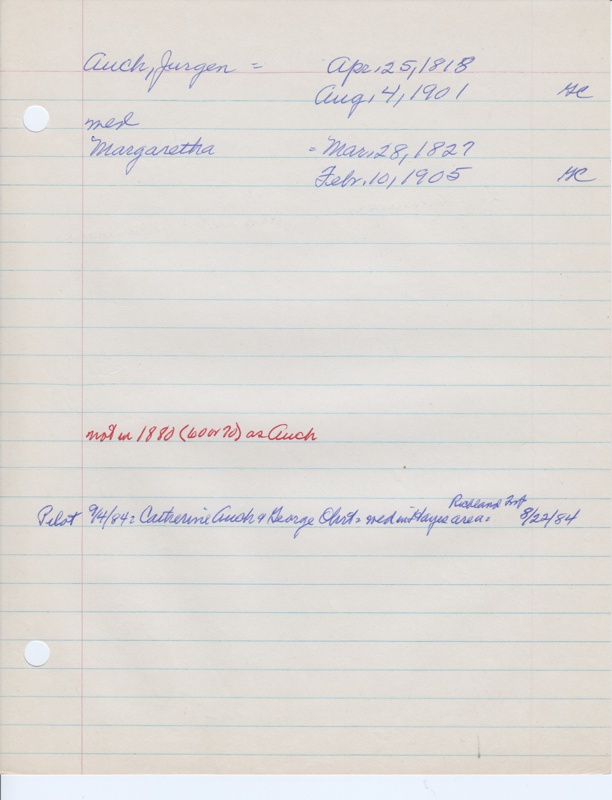 Auch, Jurgen = Apr. 25, 1818
Aug. 4, 1901 GC
med
Margaretha = Mar. 28, 1827
Febr. 10, 1905 GC
not in 1880 (60 or 70) as Auch
Richland Twp
Pilot 9/4/84: Catherine Auch & George Ohrt = med in Hayes area = 8/22/84